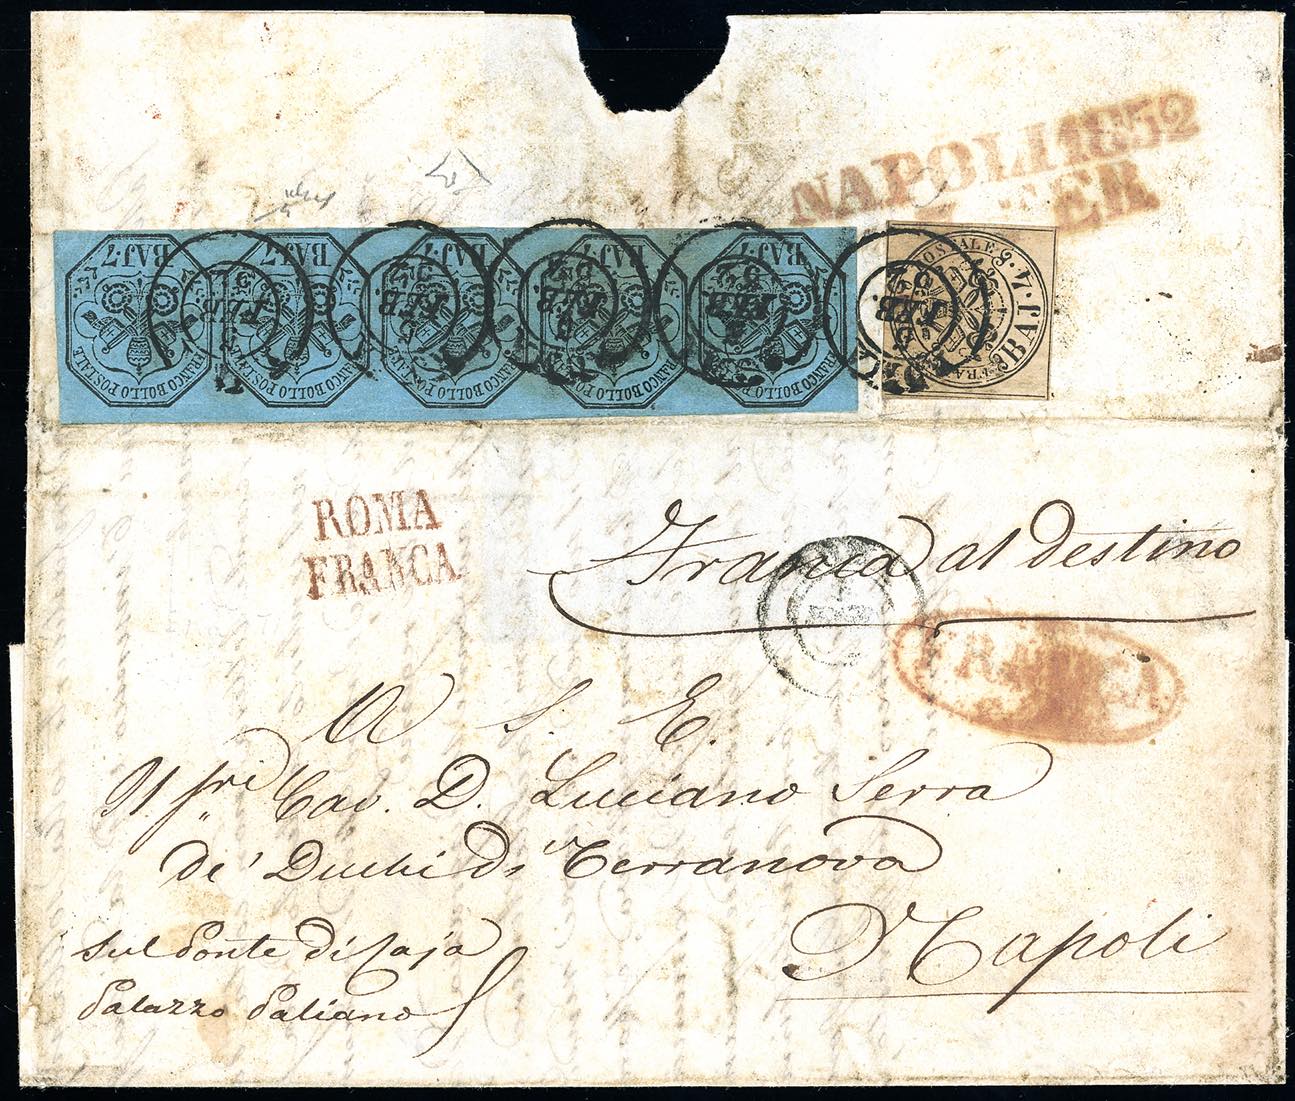 NAPOLI 1852
FER
BAJ·7 BAJ·7 BAJ·7 BAJ·7 BAJ·7
FRANCO BOLLO POSTALE FRANCO BOLLO POSTALE FRANCO BOLLO POSTALE FRANCO BOLLO POSTALE FRANCO BOLLO POSTALE
POSTALE BAJ·
FEB. 52
ROMA
FRANCA
Franca al destino
FRANCA
A S. E.
Cav. D. Luciano Serra
de' Duchi di Terranova
Napoli
sul Ponte di Caja
Palazzo Paliano